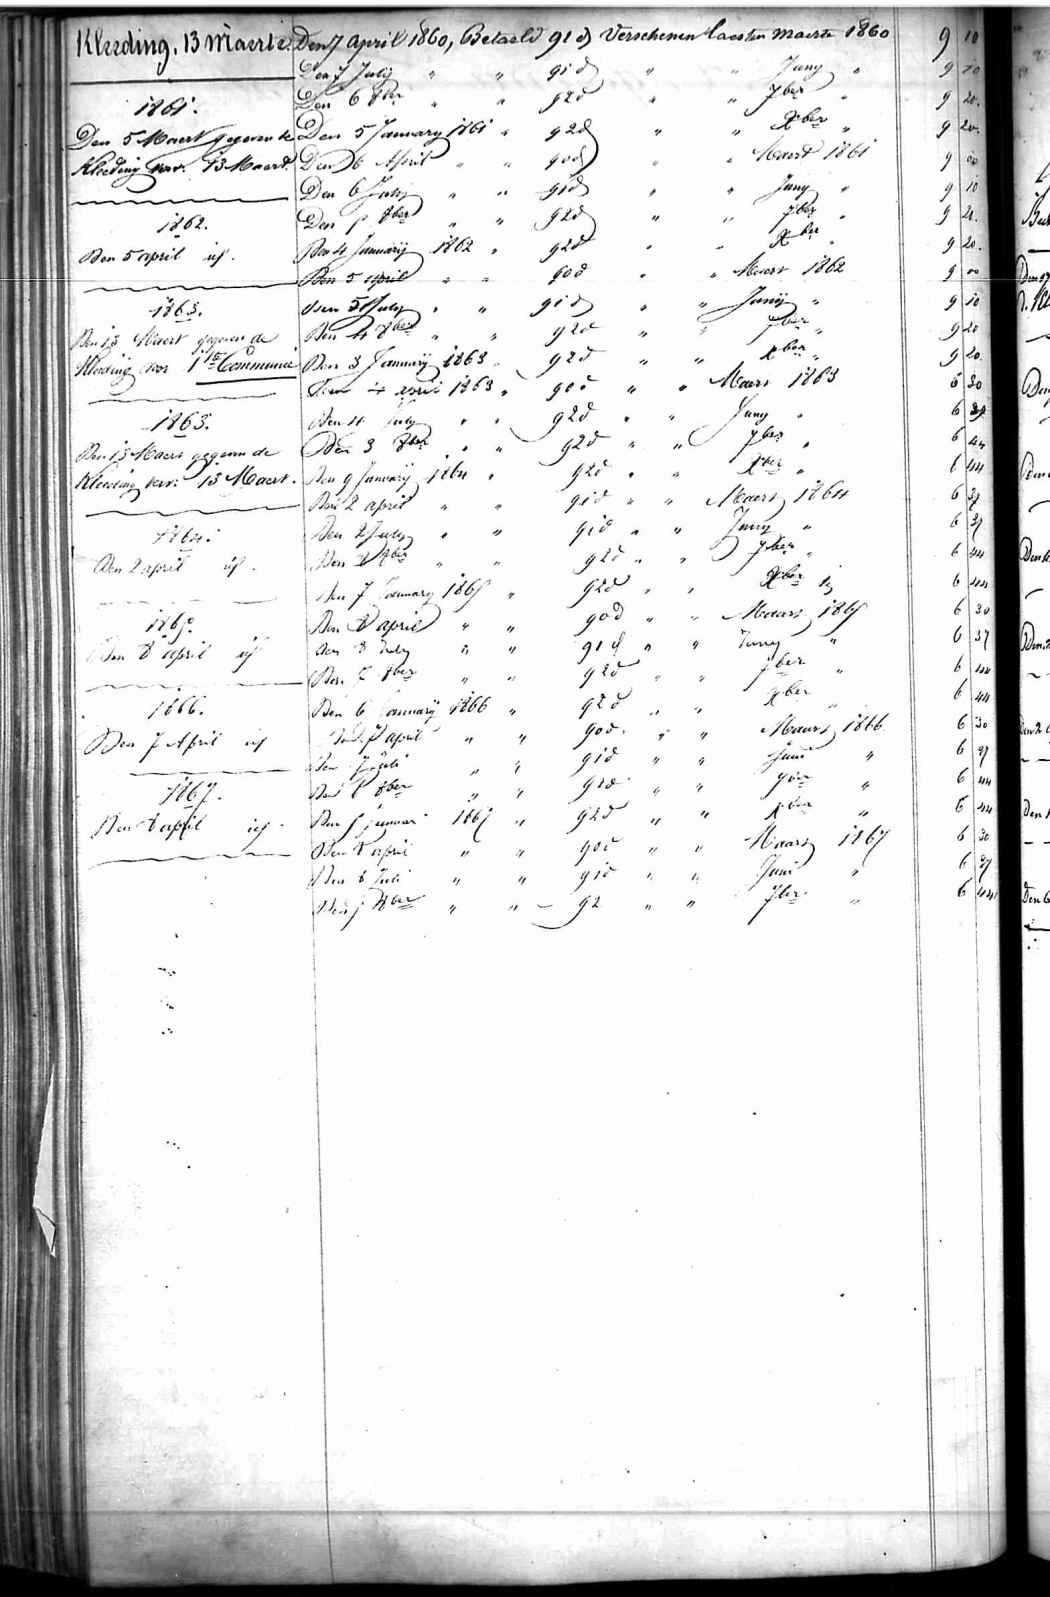 Kleeding. 13 Maerte. Den 7 April 1860, Betaeld 91 d) Verschenen laesten Maerte 1860 9 10
Den 7 July " " 91 d " " Juny " 9 10
Den 6 8ber " " 92 d " " 7ber " 9 20.
1861.
Den 5 January 1861 " 92 d " " Xber " 9 20.
Den 5 Maert gegeven de
Kleeding verv. 13 Maert.
Den 6 April " " 90 d " " Maert 1861 9 00
Den 6 July " " 91 d " " Juny " 9 10
Den 5 8ber " " 92 d " " 7ber " 9 20.
1862.
Den 4 January 1862 " 92 d " " Xber 9 20.
Den 5 april id.
Den 5 april " " 90 d " " Maert 1862 9 00
Den 5 July " " 91 d " " Juny " 9 10
1863.
Den 4 8ber " " 92 d " " 7ber " 9 20
Den 13 Maert gegeven de
Kleeding voor 1ste Communie
Den 3 January 1863 " 92 d " " Xber " 9 20.
Den 4 april 1863 " 90 d " " Maert 1863 6 30
1863.
Den 4 July " " 92 d " " Juny " 6
Den 13 Maert gegeven de
Den 3 8ber " " 92 d " " 7ber " 6 44
Kleeding verv. 13 Maert.
Den 9 January 1864 " 92 d " " Xber " 6 44
Den 2 april " " 91 d " " Maert 1864 6 37
1864.
Den 2 July " " 91 d " " Juny " 6 37
Den 2 april id.
Den 8ber " " 92 d " " 7ber " 6 44
Den 7 January 1865 " 92 d " " Xber 6 44
1865.
Den 8 april " " 90 d " " Maart 1865 6 30
Den 8 april id
Den 8 July " " 91 d " " Juny " 6 37
Den 7 8ber " " 92 d " " 7ber " 6 44
1866.
Den 6 January 1866 " 92 d " " Xber 6 44
Den 7 April id
Den 7 april " " 90 d " " Maart 1866 6 30
Den 7 Juli " " 91 d " " Juni " 6 37
Den 8ber " " 92 d " " 7ber " 6 44
1867.
Den 5 januari 1867 " 92 d " " Xber " 6 44
Den 6 april id
Den 6 april " " 90 d " " Maart 1867 6 30
Den 6 Juli " " 91 d " " Juni " 6 37
Den 8ber " " 92 " " 7ber " 6 44